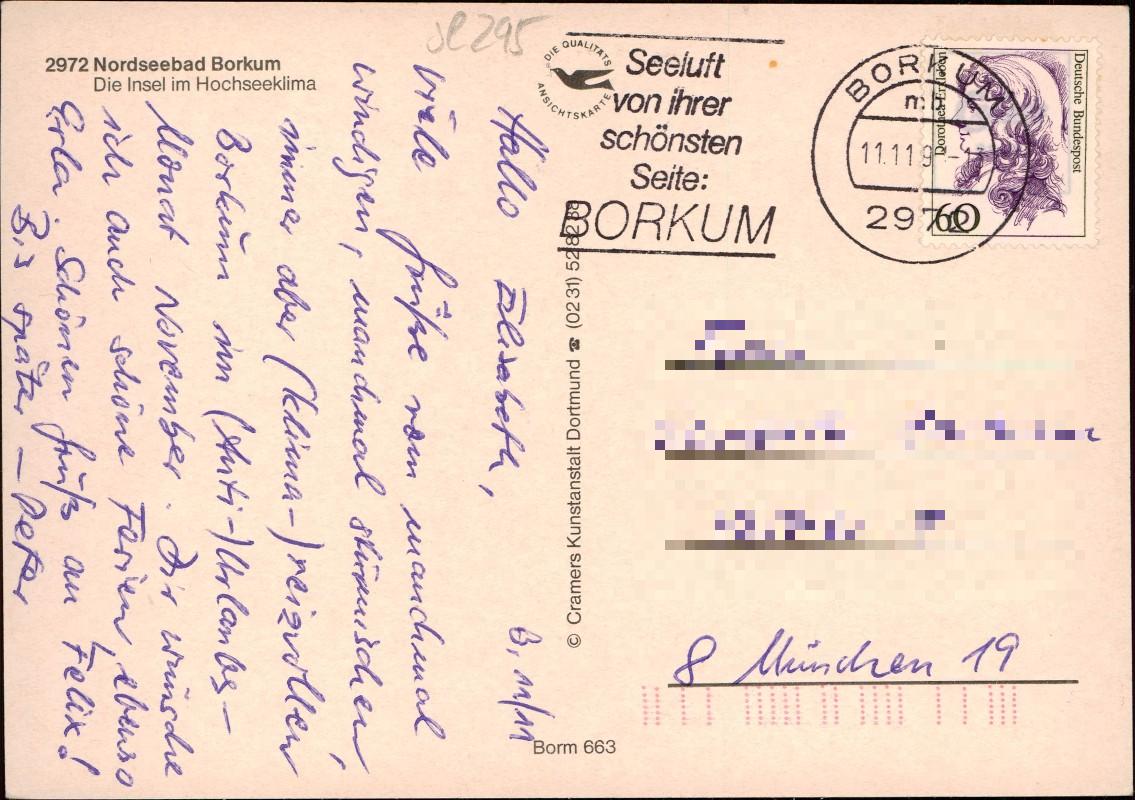 se 295
2972 Nordseebad Borkum
Die Insel im Hochseeklima
DIE QUALITÄTS
ANSICHTSKARTE
Seeluft
von ihrer
schönsten
Seite:
BORKUM
BORKUM
11.11.9
2972
Deutsche Bundespost
Dorothea Erxleben
60
B, 11/11
Hallo Elisabeth,
viele Grüße vom manchmal
windigen, manchmal stürmischen,
immer aber (klima-)reizvollen
Borkum im (Anti-)Urlaubs-
Monat November. Dir wünsche
ich auch schöne Ferien, ebenso
Erla. Schönen Gruß an Felix!
Bis später – Peter
© Cramers Kunstanstalt Dortmund ☎ (02 31) 52 82 88
8 München 19
Borm 663